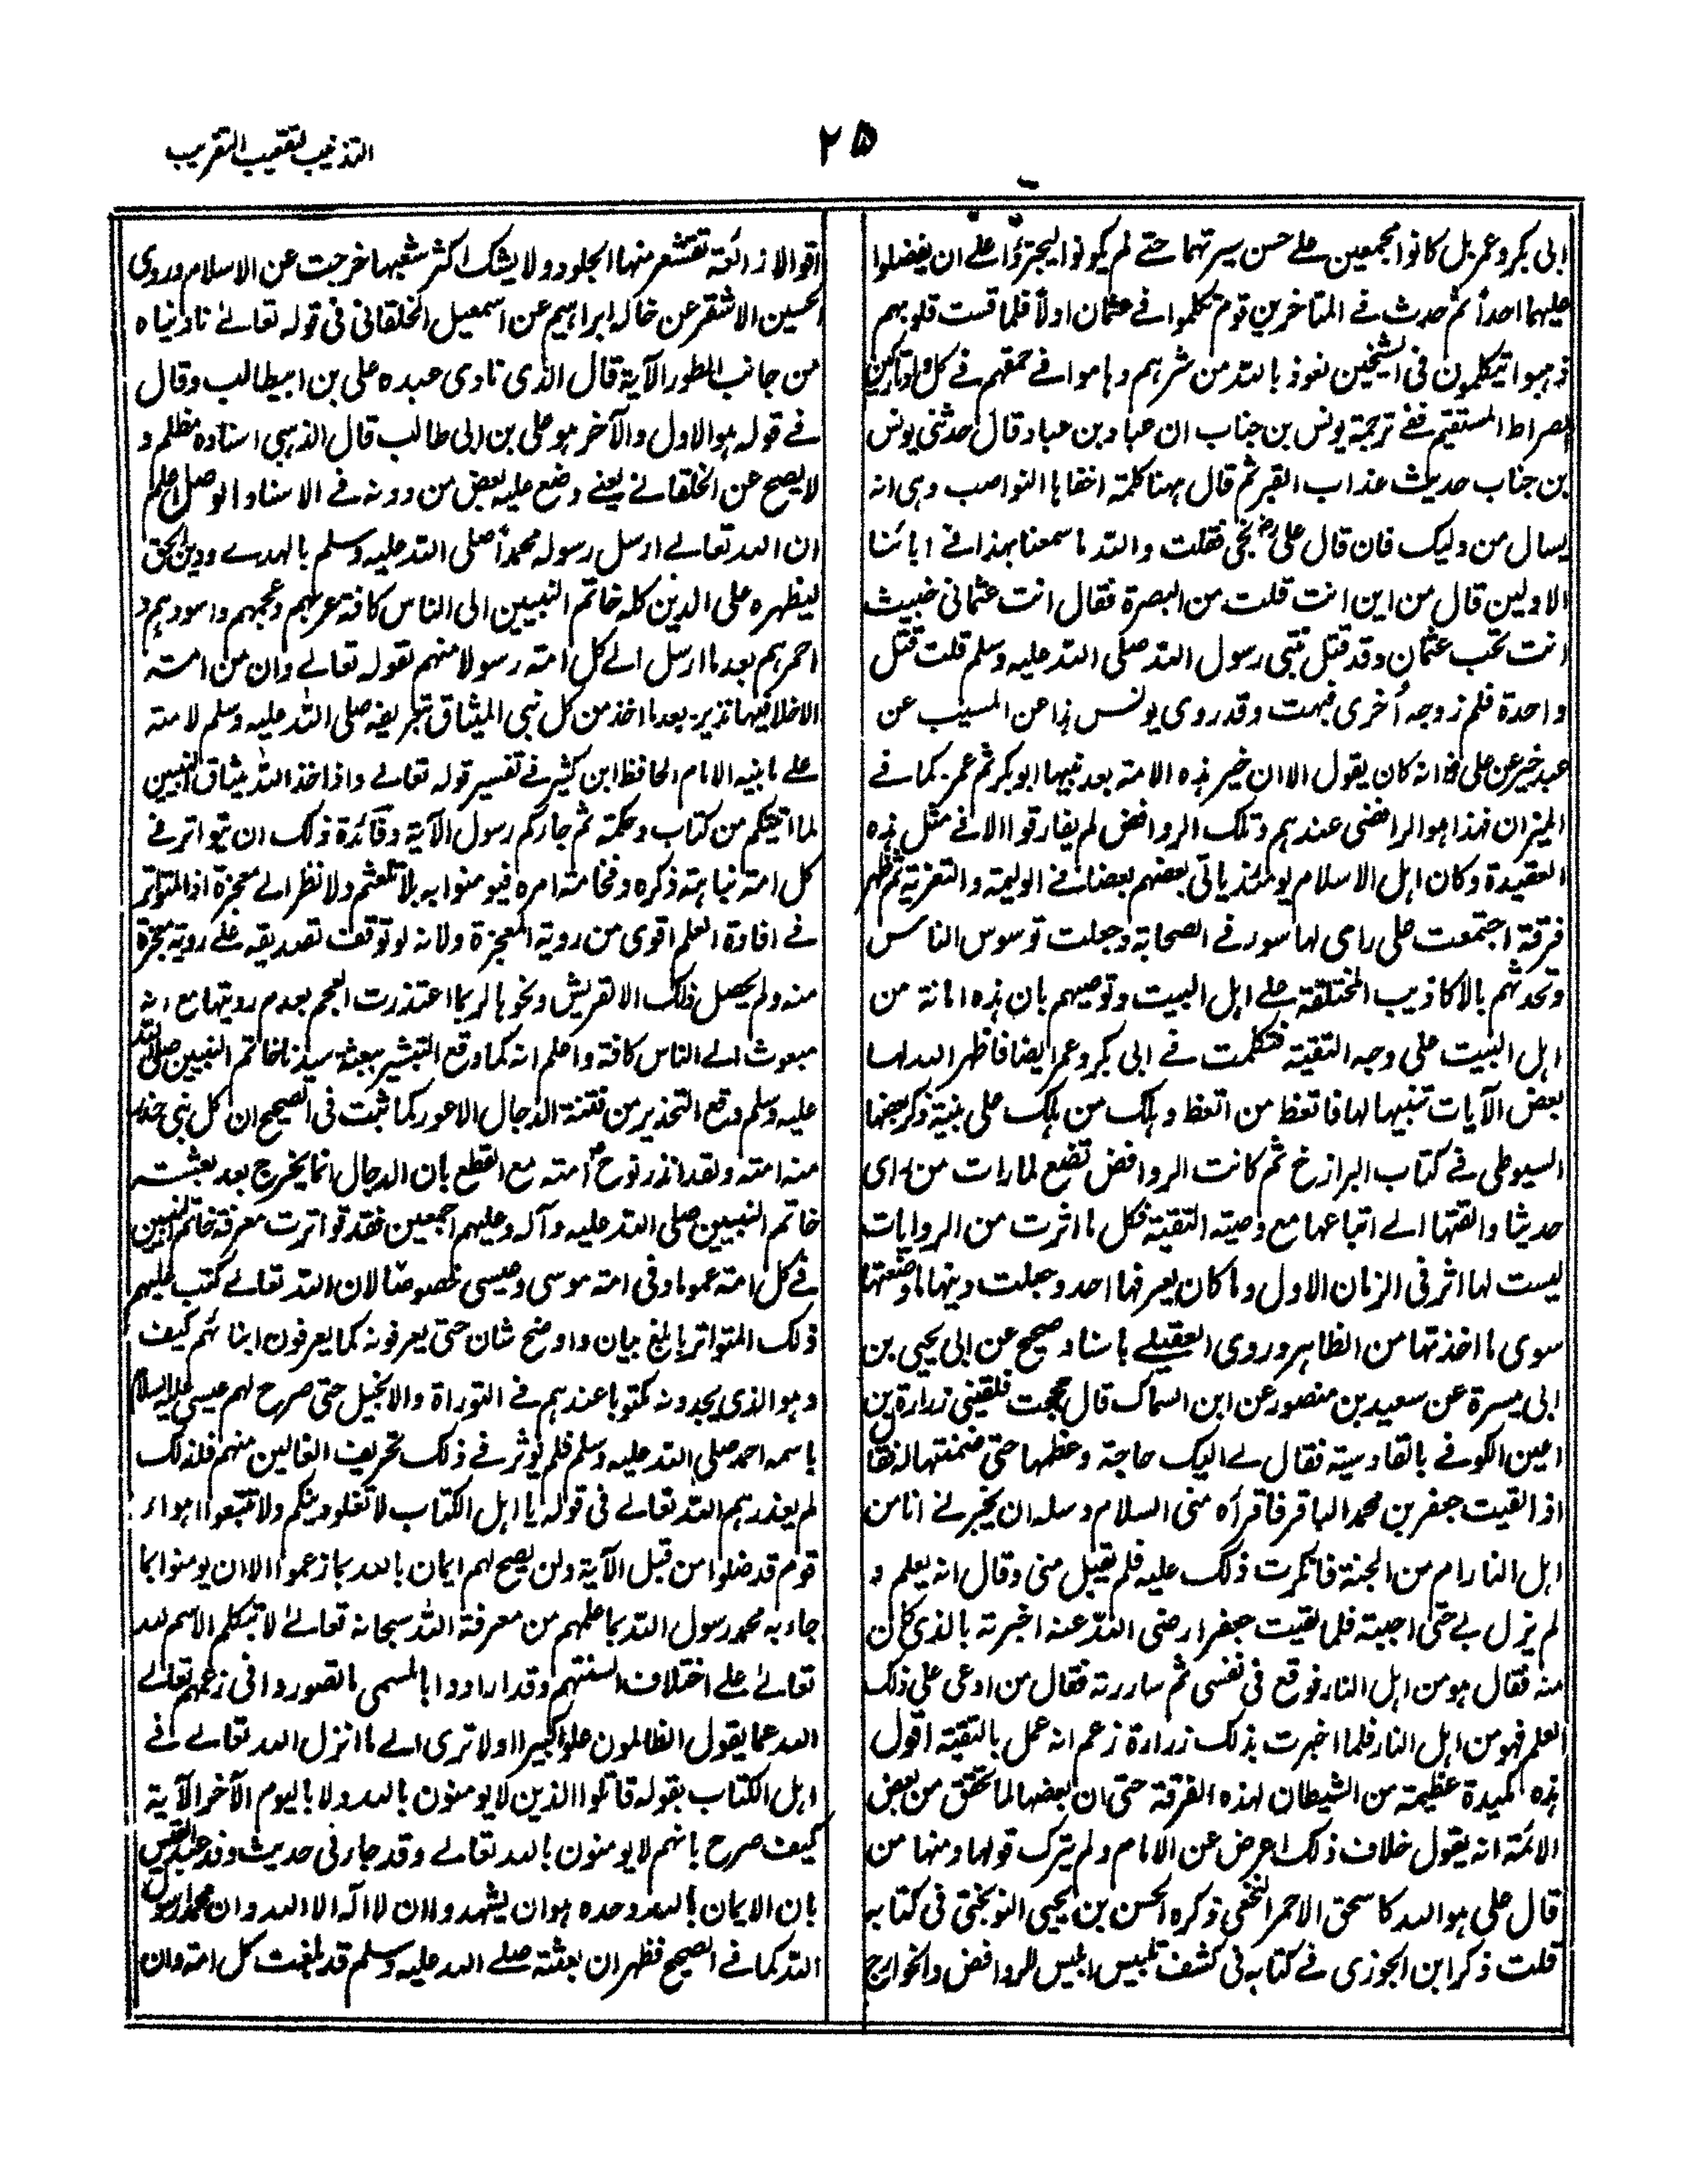 التذنيب لتعقيب التقريب
٢٥
ابى بكر وعمر بل كانوا مجمعين على حسن سيرتهما حتى لم يكونوا ليجترؤا على ان يفضلوا
عليهما احداً ثم حدث فى المتاخرين قوم تكلموا فى عثمان اولاً فلما قست قلوبهم
ذهبوا يتكلمون فى الشيخين نعوذ بالله من شرهم وهاموا فى حمقهم فى كل واد تاركين
الصراط المستقيم ففى ترجمة يونس بن جناب ان عباد بن عباد قال حدثنى يونس
بن جناب حديث عذاب القبر ثم قال ههنا كلمة اخفاها النواصب وهى انه
يسال من وليك فان قال على رض نجى فقلت والله ما سمعنا بهذا فى ابائنا
الاولين قال من اين انت قلت من البصرة فقال انت عثمانى خبيث
انت تحب عثمان وقد قتل بنتى رسول الله صلى الله عليه وسلم قلت قتل
واحدة فلم زوجه أخرى فبهت وقد روى يونس هذا عن المسيب عن
عبد خير عن على رض انه كان يقول الا ان خير هذه الامة بعد نبيها ابو بكر ثم عمر كما فى
الميزان فهذا هو الرافضى عندهم وتلك الروافض لم يفارقوا الا فى مثل هذه
العقيدة وكان اهل الاسلام يومئذ ياتى بعضهم بعضا فى الوليمة والتعزية ثم ظهر
فرقة اجتمعت على راى لها سور فى الصحابة وجعلت توسوس الناس
وتحدثهم بالاكاذيب المختلقة على اهل البيت وتوصيهم بان هذه امانة من
اهل البيت على وجه التقية فتكلمت فى ابى بكر وعمر ايضا فاظهر الله لها
بعض الآيات تنبيها لها فاتعظ من اتعظ وهلك من هلك على بنية ذكر بعضها
السيوطى فى كتاب البرازخ ثم كانت الروافض تضع لما رات من راى
حديثا والقتها الى اتباعها مع وصية التقية فكل ما اثرت من الروايات
ليست لها اثر فى الزمان الاول وما كان يعرفها احد وجعلت دينها ما وضعتها
سوى ما اخذتها من الظاهر وروى العقيلى باسناد صحيح عن ابى يحيى بن
ابى ميسرة عن سعيد بن منصور عن ابن السماك قال حججت فلقينى زرارة بن
اعين الكوفى بالقادسية فقال لى اليك حاجة وعظمها حتى ضمنتها له فقال
اذا لقيت جعفر بن محمد الباقر فاقرأه منى السلام وسله ان يخبرنى انا من
اهل النار ام من الجنة فانكرت ذلك عليه فلم يقبل منى وقال انه يعلم و
لم يزل بى حتى اجبته فلما لقيت جعفرا رضى الله عنه اخبرته بالذى كان
منه فقال هو من اهل النار فوقع فى نفسى ثم ساررته فقال من ادعى على ذلك
العلم فهو من اهل النار فلما اخبرت بذلك زرارة زعم انه عمل بالتقية اقول
هذه مكيدة عظيمة من الشيطان لهذه الفرقة حتى ان بعضها لما تحقق من بعض
الائمة انه يقول خلاف ذلك اعرض عن الامام ولم يترك قولها ومنها من
قال على هو الله كاسحق الاحمر النخعى ذكره الحسن بن يحيى النوبختى فى كتابه
قلت ذكر ابن الجوزى فى كتابه فى كشف تلبيس ابليس للروافض والخوارج
اقوالا زائغة تقشعر منها الجلود ولا يشك اكثر شعبها خرجت عن الاسلام وروى
الحسين الاشقر عن خاله ابراهيم عن اسمعيل الخلقانى فى قوله تعالى ناديناه
من جانب الطور الآية قال الذى نادى عبده على بن ابيطالب وقال
فى قوله هو الاول والآخر هو على بن ابى طالب قال الذهبى اسناده مظلم و
لا يصح عن الخلقانى يعنى وضع عليه بعض من دونه فى الاسناد الوصل اعلم
ان الله تعالى ارسل رسوله محمداً صلى الله عليه وسلم بالهدى ودين الحق
ليظهره على الدين كله خاتم النبيين الى الناس كافة عربهم وعجمهم واسودهم و
احمرهم بعد ما ارسل الى كل امة رسولا منهم لقوله تعالى وان من امة
الا خلا فيها نذير بعد ما اخذ من كل نبى الميثاق بتعريفه صلى الله عليه وسلم لامته
على ما بنيه الامام الحافظ ابن كثير فى تفسير قوله تعالى واذ اخذ الله ميثاق النبيين
لما اتيتكم من كتاب وحكمة ثم جاءكم رسول الآية وفائدة ذلك ان يتواتر فى
كل امة نباهة ذكره وفخامة امره فيومنوا به بلا تلعثم ولا نظر الى معجزة اذ المتواتر
فى افادة العلم اقوى من روية المعجزة ولانه لو توقف تصديقه على روية معجزة
منه ولم يحصل ذلك الا لقريش ونحوها لربما اعتذرت العجم بعدم رويتها مع انه
مبعوث الى الناس كافة واعلم انه كما وقع التبشير ببعثة سيدنا خاتم النبيين صلى الله
عليه وسلم وقع التحذير من فتنة الدجال الاعور كما ثبت فى الصحيح ان كل نبى حذر
منه امته ولقد انذر نوح امته مع القطع بان الدجال انما يخرج بعد بعثت
خاتم النبيين صلى الله عليه وآله وعليهم اجمعين فقد تواترت معرفة خاتم النبيين
فى كل امة عموما وفى امة موسى وعيسى خصوصا لان الله تعالى كتب عليهم
ذلك المتواتر بابلغ بيان واوضح شان حتى يعرفونه كما يعرفون ابنائهم كيف
وهو الذى يجدونه مكتوبا عندهم فى التوراة والانجيل حتى صرح لهم عيسى عليه السلام
باسمه احمد صلى الله عليه وسلم فلم يوثر فى ذلك تحريف الغالين منهم فلذلك
لم يعذرهم الله تعالى فى قوله يا اهل الكتاب لا تغلو دينكم ولا تتبعوا اهواء
قوم قد ضلوا من قبل الآية ولن يصح لهم ايمان بالله بما زعموا الا ان يومنوا بما
جاء به محمد رسول الله بما علمهم من معرفة الله سبحانه تعالى لا تبكلم الاسم لله
تعالى على اختلاف السنتهم وقد ارادوا بالمسمى ما تصوروا فى زعمهم تعالى
الله عما يقول الظالمون علوا كبيرا اولا ترى الى ما انزل الله تعالى فى
اهل الكتاب بقوله قاتلوا الذين لا يومنون بالله ولا باليوم الآخر الآية
كيف صرح بانهم لا يومنون بالله تعالى وقد جاء فى حديث وفد عبد القيس
بان الايمان بالله وحده هو ان يشهدوا ان لا اله الا الله وان محمدا رسول
الله كما فى الصحيح فظهر ان بعثته صلى الله عليه وسلم قد بلغت كل امة وان